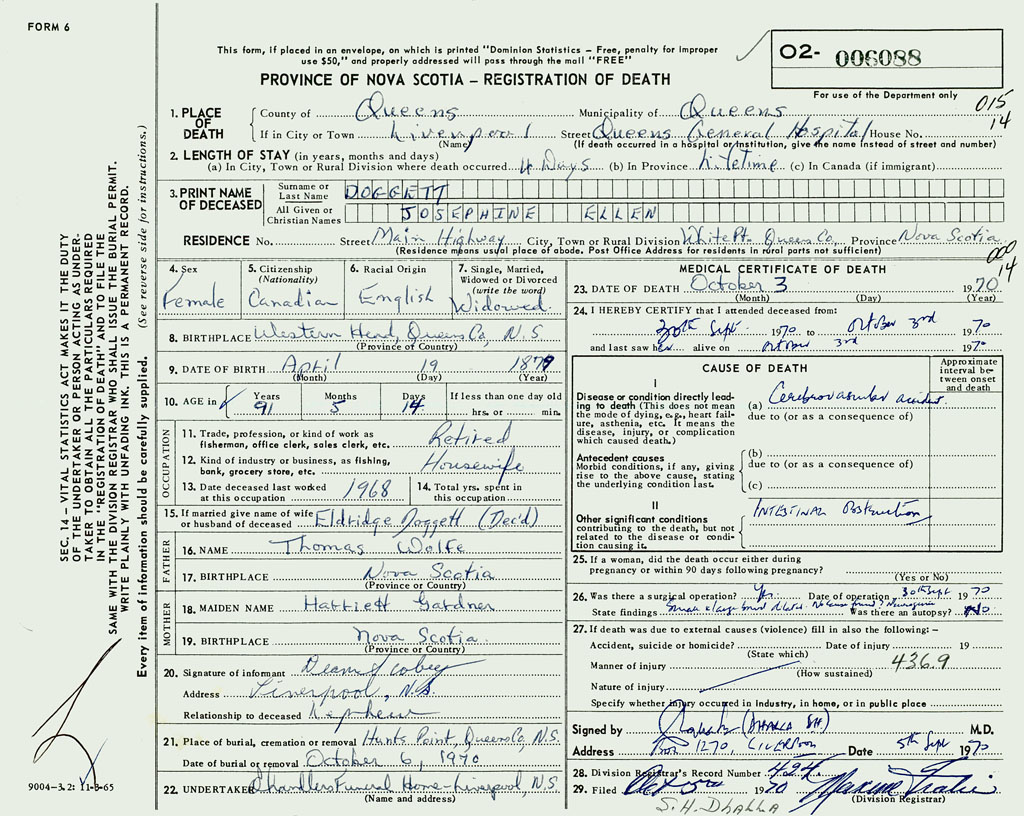 FORM 6
This form, if placed in an envelope, on which is printed "Dominion Statistics – Free, penalty for improper
use $50," and properly addressed will pass through the mail "FREE"
PROVINCE OF NOVA SCOTIA – REGISTRATION OF DEATH
O2- 006088
For use of the Department only
015
14
1. PLACE OF DEATH
County of Queens Municipality of Queens
If in City or Town Liverpool Street Queens General Hospital House No.
(Name) (If death occurred in a hospital or institution, give the name instead of street and number)
2. LENGTH OF STAY (in years, months and days)
(a) In City, Town or Rural Division where death occurred 4 Days (b) In Province Lifetime (c) In Canada (if immigrant)
3. PRINT NAME OF DECEASED
Surname or Last Name DOGGETT
All Given or Christian Names JOSEPHINE ELLEN
RESIDENCE No. Street Main Highway City, Town or Rural Division White Pt. Queens Co, Province Nova Scotia
(Residence means usual place of abode. Post Office Address for residents in rural parts not sufficient)
000
14
4. Sex Female
5. Citizenship (Nationality) Canadian
6. Racial Origin English
7. Single, Married, Widowed or Divorced (write the word) Widowed
8. BIRTHPLACE Western Head, Queens Co, N.S.
(Province or Country)
9. DATE OF BIRTH April 19 1879
(Month) (Day) (Year)
10. AGE in Years 91 Months 5 Days 14 If less than one day old hrs. or min.
OCCUPATION
11. Trade, profession, or kind of work as fishermen, office clerk, sales clerk, etc. Retired
12. Kind of industry or business, as fishing, bank, grocery store, etc. Housewife
13. Date deceased last worked at this occupation 1968
14. Total yrs. spent in this occupation
15. If married give name of wife or husband of deceased Eldridge Doggett (Dec'd)
FATHER
16. NAME Thomas Wolfe
17. BIRTHPLACE Nova Scotia
(Province or Country)
MOTHER
18. MAIDEN NAME Harriett Gardner
19. BIRTHPLACE Nova Scotia
(Province or Country)
20. Signature of informant
Address Liverpool, N.S.
Relationship to deceased Nephew
21. Place of burial, cremation or removal Hunts Point, Queens Co, N.S.
Date of burial or removal October 6, 1970
22. UNDERTAKER Chandlers Funeral Home - Liverpool, N.S.
(Name and address)
MEDICAL CERTIFICATE OF DEATH
23. DATE OF DEATH October 3 1970
(Month) (Day) (Year)
24. I HEREBY CERTIFY that I attended deceased from:
30th Sept 1970 to October 3rd 1970
and last saw her alive on October 3rd 1970
CAUSE OF DEATH
Approximate interval between onset and death
I
Disease or condition directly leading to death (This does not mean the mode of dying, e.g., heart failure, asthenia, etc. It means the disease, injury, or complication which caused death.)
(a) Cerebrovascular accident
due to (or as a consequence of)
Antecedent causes
Morbid conditions, if any, giving rise to the above cause, stating the underlying condition last.
(b)
due to (or as a consequence of)
(c)
II
Other significant conditions contributing to the death, but not related to the disease or condition causing it.
Intestinal Obstruction
25. If a woman, did the death occur either during pregnancy or within 90 days following pregnancy?
(Yes or No)
26. Was there a surgical operation? Yes Date of operation 30th Sept 1970
State findings Small & large bowel dilated. No cause found? Was there an autopsy? No
27. If death was due to external causes (violence) fill in also the following: –
Accident, suicide or homicide? Date of injury 19
(State which)
Manner of injury 436.9
(How sustained)
Nature of injury
Specify whether injury occurred in industry, in home, or in public place
Signed by (DHALLA SH) M.D.
Address Box 1270, LIVERPOOL Date 5th Sept 1970
28. Division Registrar's Record Number 424
29. Filed Oct 5th 1970
(Division Registrar)
S.H. Dhalla
SEC. 14 – VITAL STATISTICS ACT MAKES IT THE DUTY
OF THE UNDERTAKER OR PERSON ACTING AS UNDER-
TAKER TO OBTAIN ALL THE PARTICULARS REQUIRED
IN THE "REGISTRATION OF DEATH" AND TO FILE THE
SAME WITH THE DIVISION REGISTRAR WHO SHALL ISSUE THE BURIAL PERMIT.
WRITE PLAINLY WITH UNFADING INK. THIS IS A PERMANENT RECORD.
Every item of information should be carefully supplied. (See reverse side for instructions.)
9004-3.2: 11-8-65